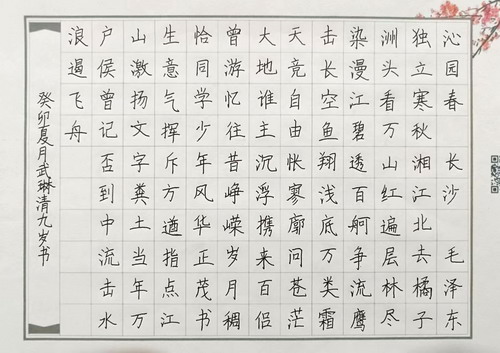 沁园春 长沙 毛泽东
独立寒秋湘江北去橘子
洲头看万山红遍层林尽
染漫江碧透百舸争流鹰
击长空鱼翔浅底万类霜
天竞自由怅寥廓问苍茫
大地谁主沉浮携来百侣
曾游忆往昔峥嵘岁月稠
恰同学少年风华正茂书
生意气挥斥方遒指点江
山激扬文字粪土当年万
户侯曾记否到中流击水
浪遏飞舟
癸卯夏月武琳清九岁书